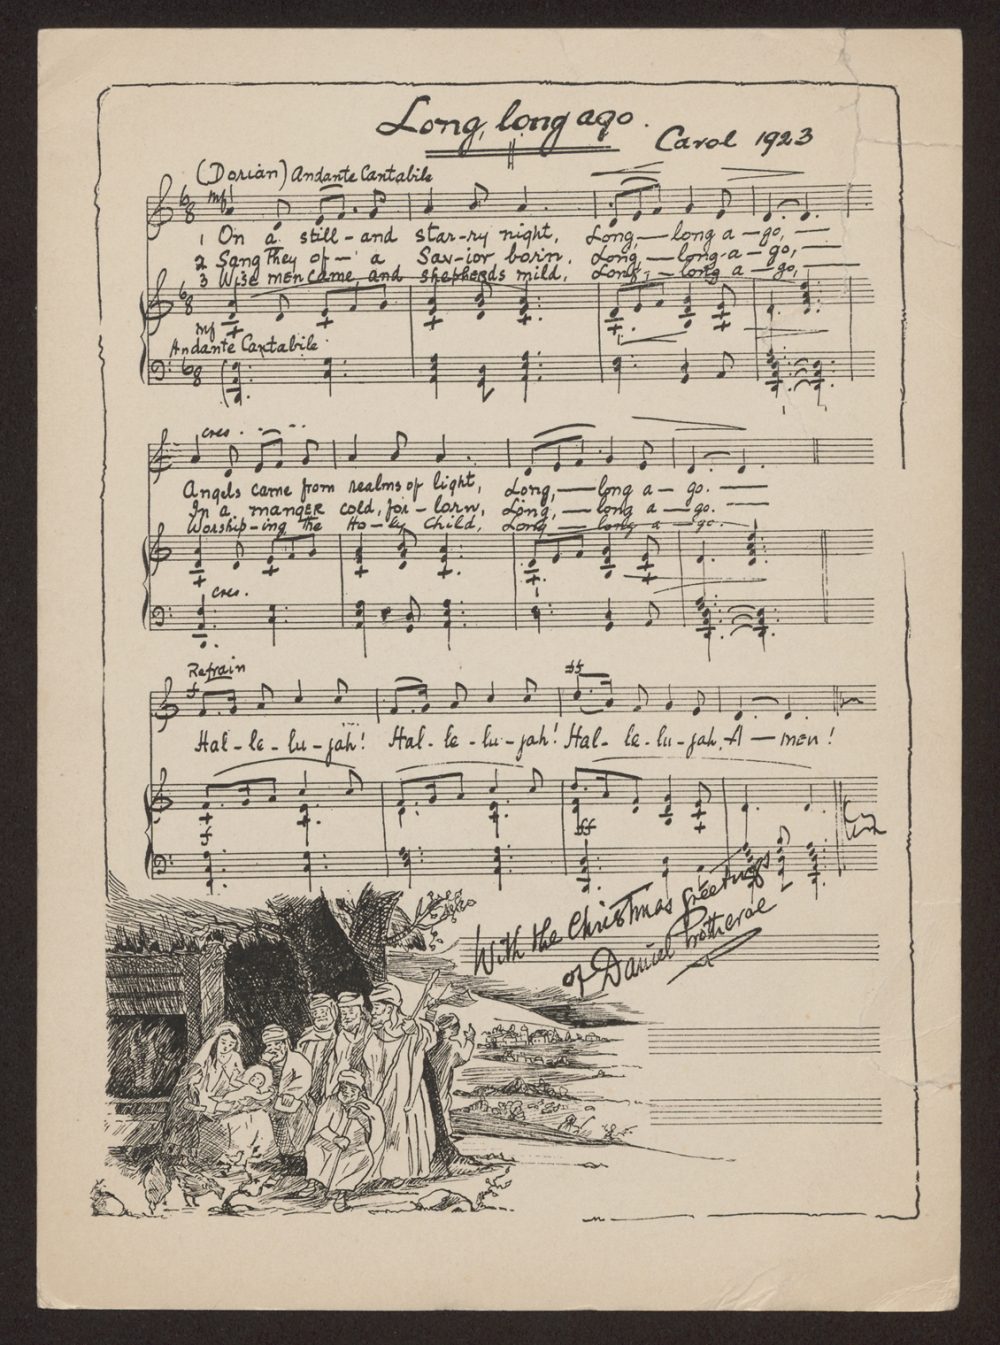 Long, long ago.
Carol 1923
(Dorian) Andante Cantabile
mf
1 On a still - and star-ry night, Long, — long a - go, —
2 Sang they of — a Sav-ior born, Long, — long-a - go, —
3 Wise men came, and shepherds mild, Long, — long a - go, —
mf
Andante Cantabile
cres.
Angels came from realms of light, Long, — long a - go. —
In a manger cold, for-lorn, Long, — long a - go. —
Worship-ing the Ho-ly Child, Long — long a - go. —
cres.
Refrain
f
ff
Hal-le-lu-jah! Hal-le-lu-jah! Hal-le-lu-jah, A — men!
f
ff
With the Christmas Greetings
of Daniel Protheroe